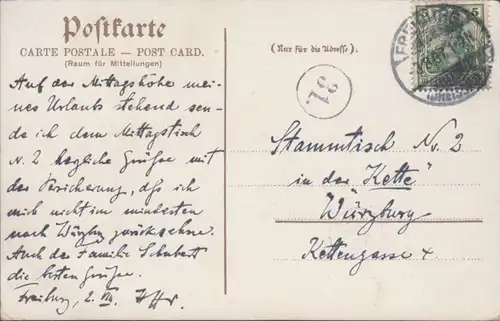 Postkarte
CARTE POSTALE — POST CARD.
(Raum für Mitteilungen)
(Nur für die Adresse).
Auf der Mittagshöhe mei-
nes Urlaubs stehend sen-
de ich dem Mittagstisch
N. 2 herzliche Grüße mit
der Versicherung, dß ich
mich nicht im mindesten
nach Würzbg zurücksehne.
Auch der Familie Schubert
die besten Grüße.
Freiburg, 2. VIII.
Stammtisch No. 2
in der "Kette"
Würzburg
Kettengasse 4
FREIBURG
5
23